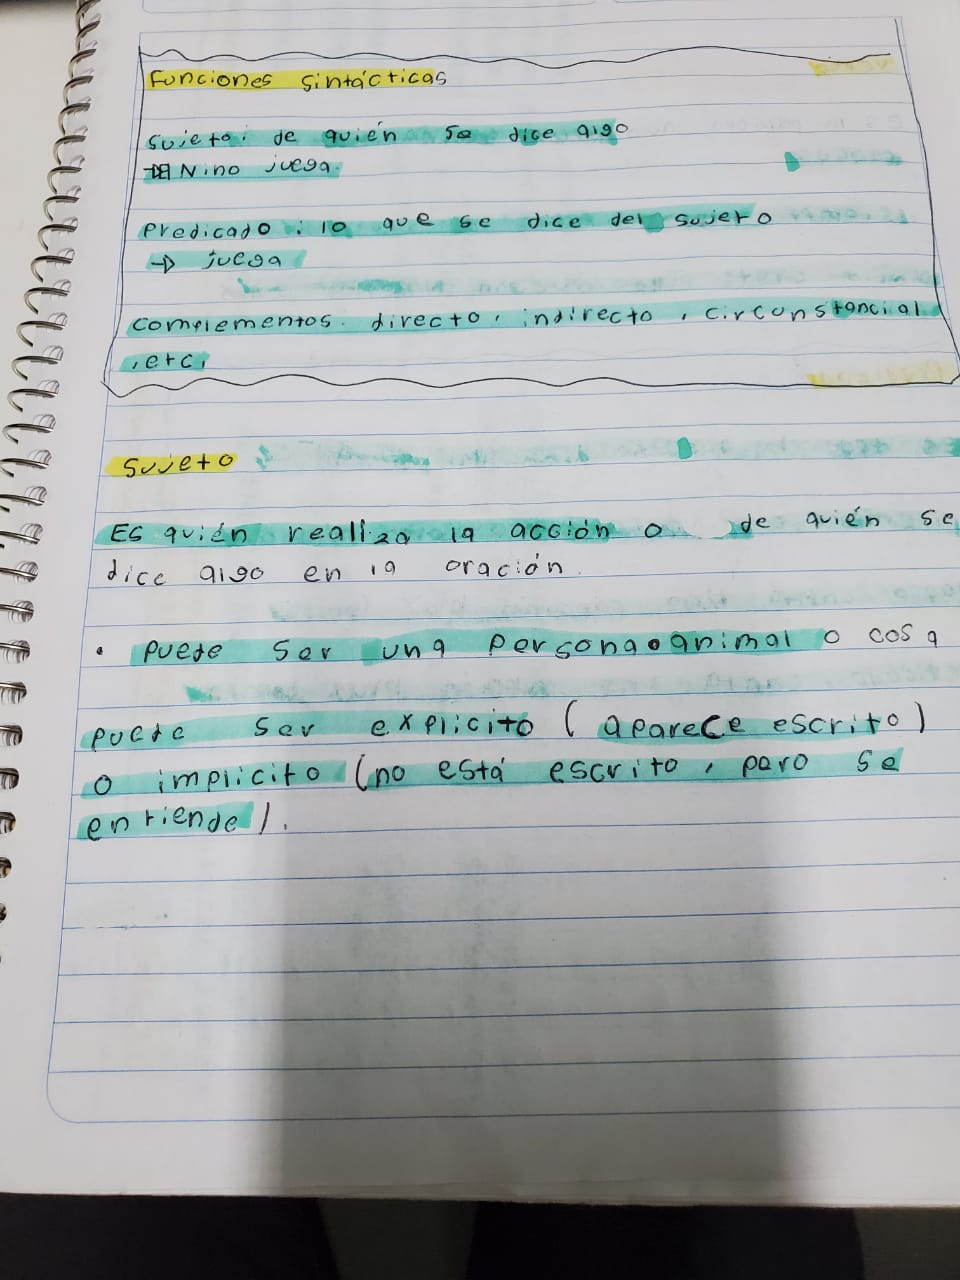 Funciones sintácticas
Sujeto: de quién se dice algo
Nino juega.
Predicado: lo que se dice del sujeto
→ juega
Complementos. directo, indirecto, circunstancial
, etc,
Sujeto
Es quién realiza la acción o de quién se
dice algo en la oración.
• puede ser una persona o animal o cosa
puede ser explicito (aparece escrito)
o implicito (no está escrito, pero se
entiende).